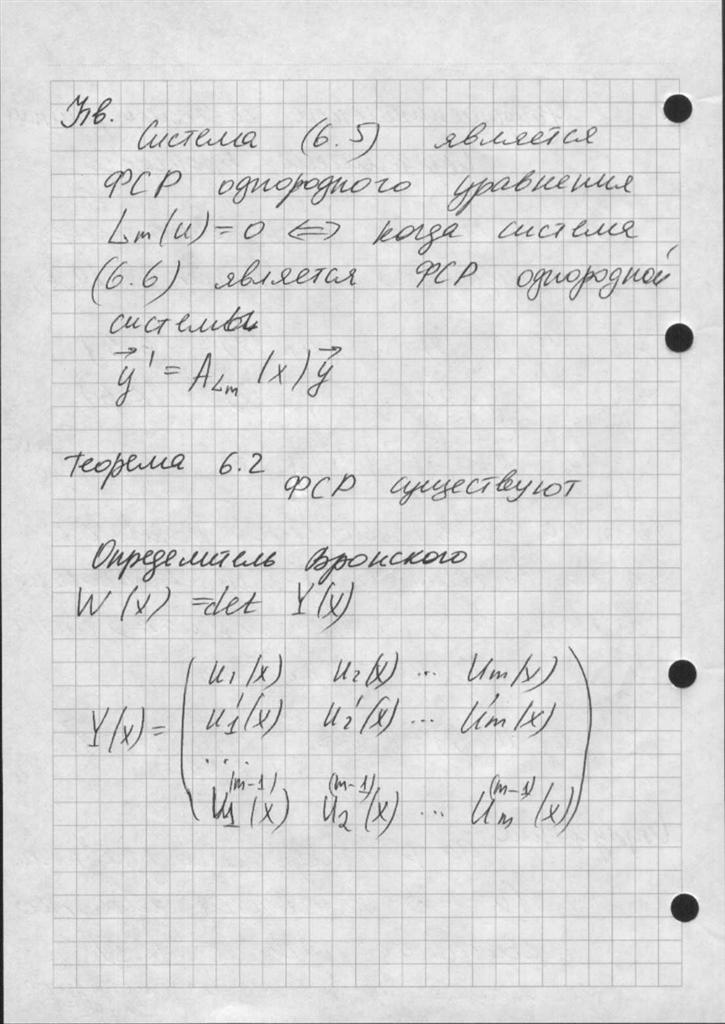 Утв.
Система (6.5) является
ФСР однородного уравнения
Lₘ(u) = 0 ⟺ когда система
(6.6) является ФСР однородной
системы
y⃗' = A_{Lₘ}(x) y⃗
Теорема 6.2
ФСР существуют
Определитель Вронского
W(x) = det Y(x)
u₁(x) u₂(x) ... uₘ(x)
Y(x) = u₁'(x) u₂'(x) ... uₘ'(x)
. . .
u₁^{(m-1)}(x) u₂^{(m-1)}(x) ... uₘ^{(m-1)}(x)